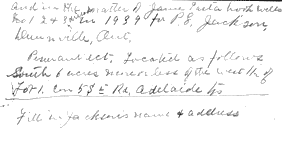 and in the matter of James Easta both wells
No 1 2 & 3 in 1939 for P.E. Jackson,
Dunnville, Ont,
Permanent, Located as follows
South 6 acres more or less of the west ½ of
Lot 1. Con 5 S E Rd, Adelaide Tp
Fill in Jacksons name & address